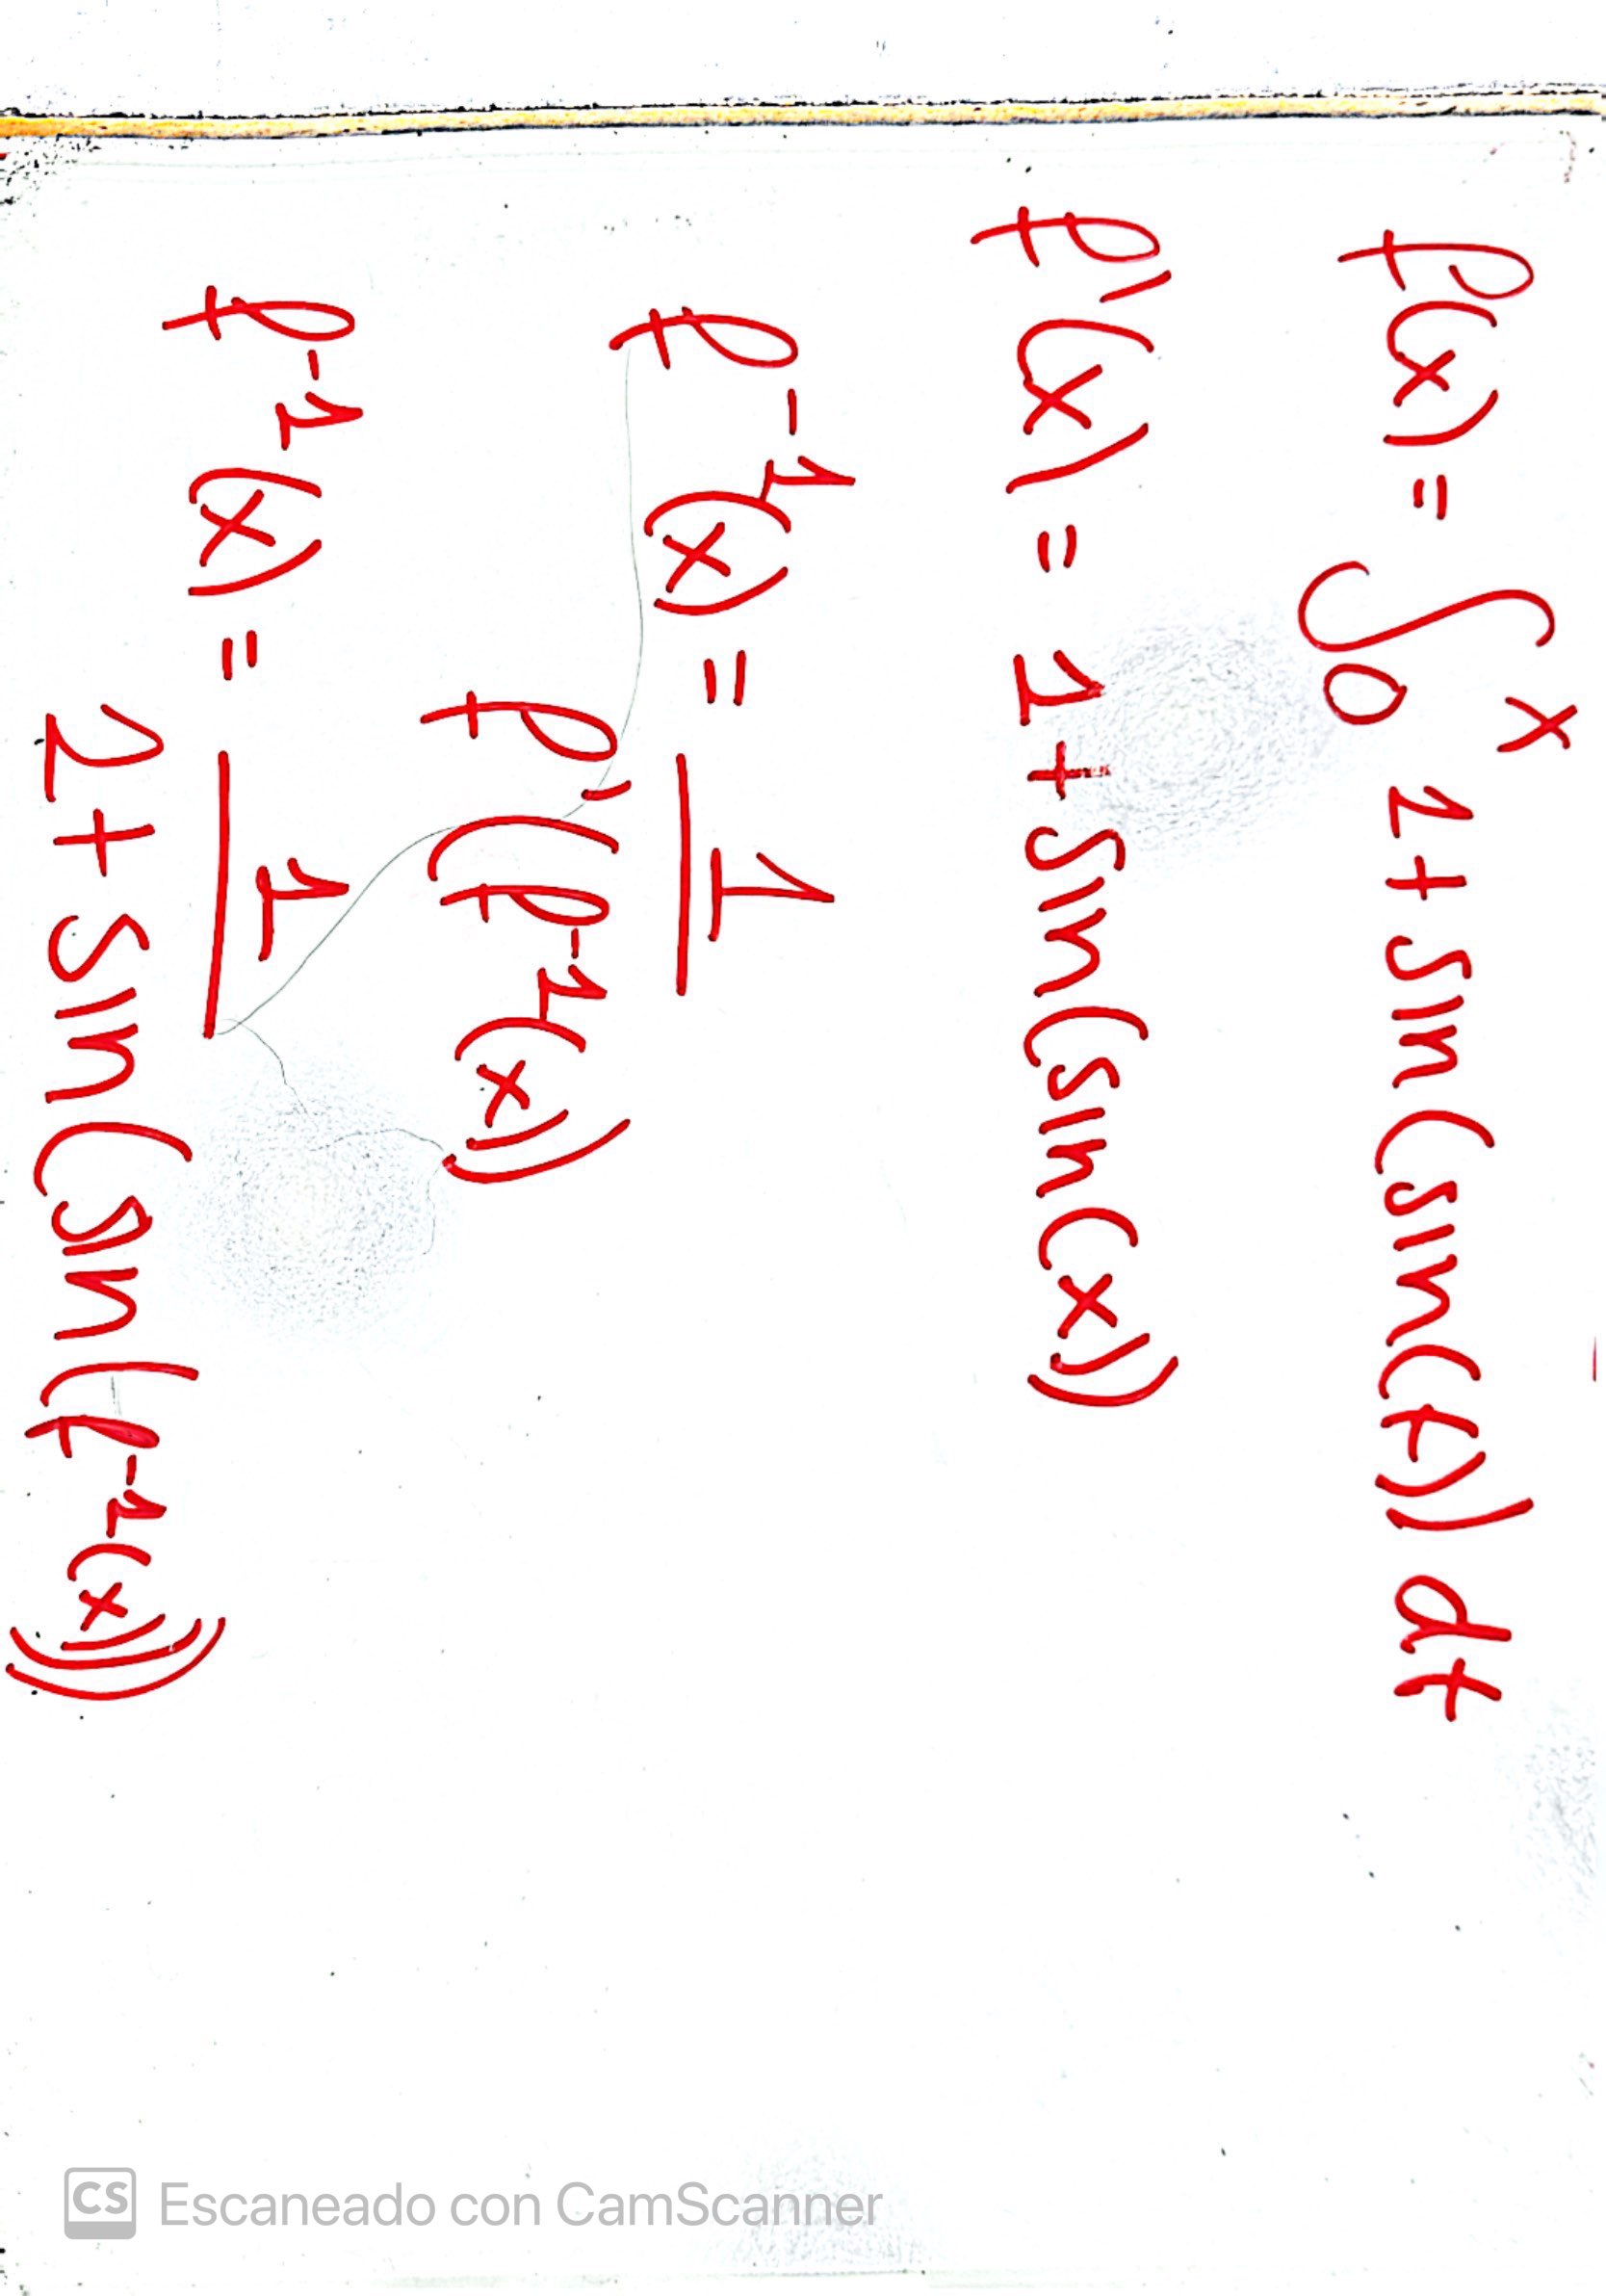 f(x) = ∫₀ˣ 1 + sin(sin(t)) dt
f'(x) = 1 + sin(sin(x))
f⁻¹(x) = 1 / f'(f⁻¹(x))
f⁻¹(x) = 1 / 1 + sin(sin(f⁻¹(x)))
CS Escaneado con CamScanner